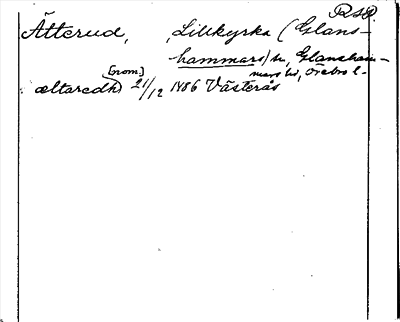 RSP
Ätterud, Lillkyrka (Glans-
hammars) sn, Glansham-
mars hd, Örebro l.
[nom.]
æltaredh 21/12 1486 Västerås